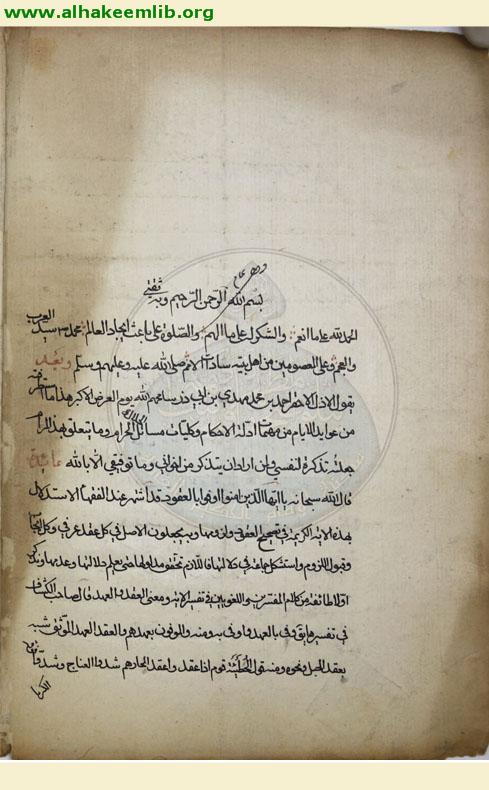 www.alhakeemlib.org
بسم الله الرحمن الرحيم وبه ثقتي
الحمد لله على ما انعم والشكر له على ما الهم والصلوة على باعث ايجاد العالم محمد سيد العرب
والعجم وعلى المعصومين من اهل بيته سادات الامم صلى الله عليه وعليهم وسلم وبعد
يقول الاذل الاحقر احمد بن محمد مهدي بن ابي ذر سامحهم الله يوم العرض الاكبر هذا ما
من عوايد الايام من مهمات ادلة الاحكام وكليات مسائل الحلال والحرام وما يتعلق بهذا المرام
جعلته تذكرة لنفسي ولمن اراد ان يتذكر من اخواني وما توفيقي الا بالله عائدة
قال الله سبحانه يا ايها الذين امنوا اوفوا بالعقود قد اشتهر عند الفقهاء الاستدلال
بهذه الاية الكريمة في تصحيح العقود ولزومها وبه يجعلون الاصل في كل عقد عرفي وكل ايجاب
وقبول اللزوم واستشكل جماعة في دلالتها فاللازم تحقق مدلولها حتى يعلم دلالتها وعدمها ونذكر
اولا طائفة من كلام المفسرين واللغويين في تفسير الاية ومعنى العقد والعهد قال صاحب الكشاف
في تفسيره يق وفى بالعهد واوفى به ومنه والموفون بعهدهم والعقد العهد الموثق شبه
بعقد الحبل ونحوه ومنه قول الحطيئة قوم اذا عقدوا عقدا لجارهم شدوا العناج وشدوا فوقه
الكربا